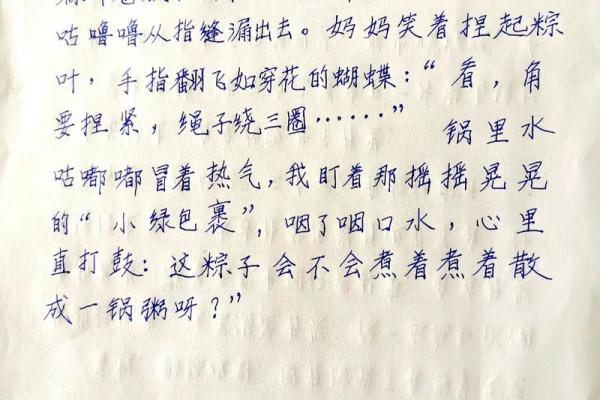 咕噜噜从指缝漏出去。妈妈笑着捏起粽
叶，手指翻飞如穿花的蝴蝶：“看，角
要捏紧，绳子绕三圈……” 锅里水
咕嘟嘟冒着热气，我盯着那摇摇晃晃
的“小绿包裹”，咽了咽口水，心里
直打鼓：这粽子会不会煮着煮着散
成一锅粥呀？”